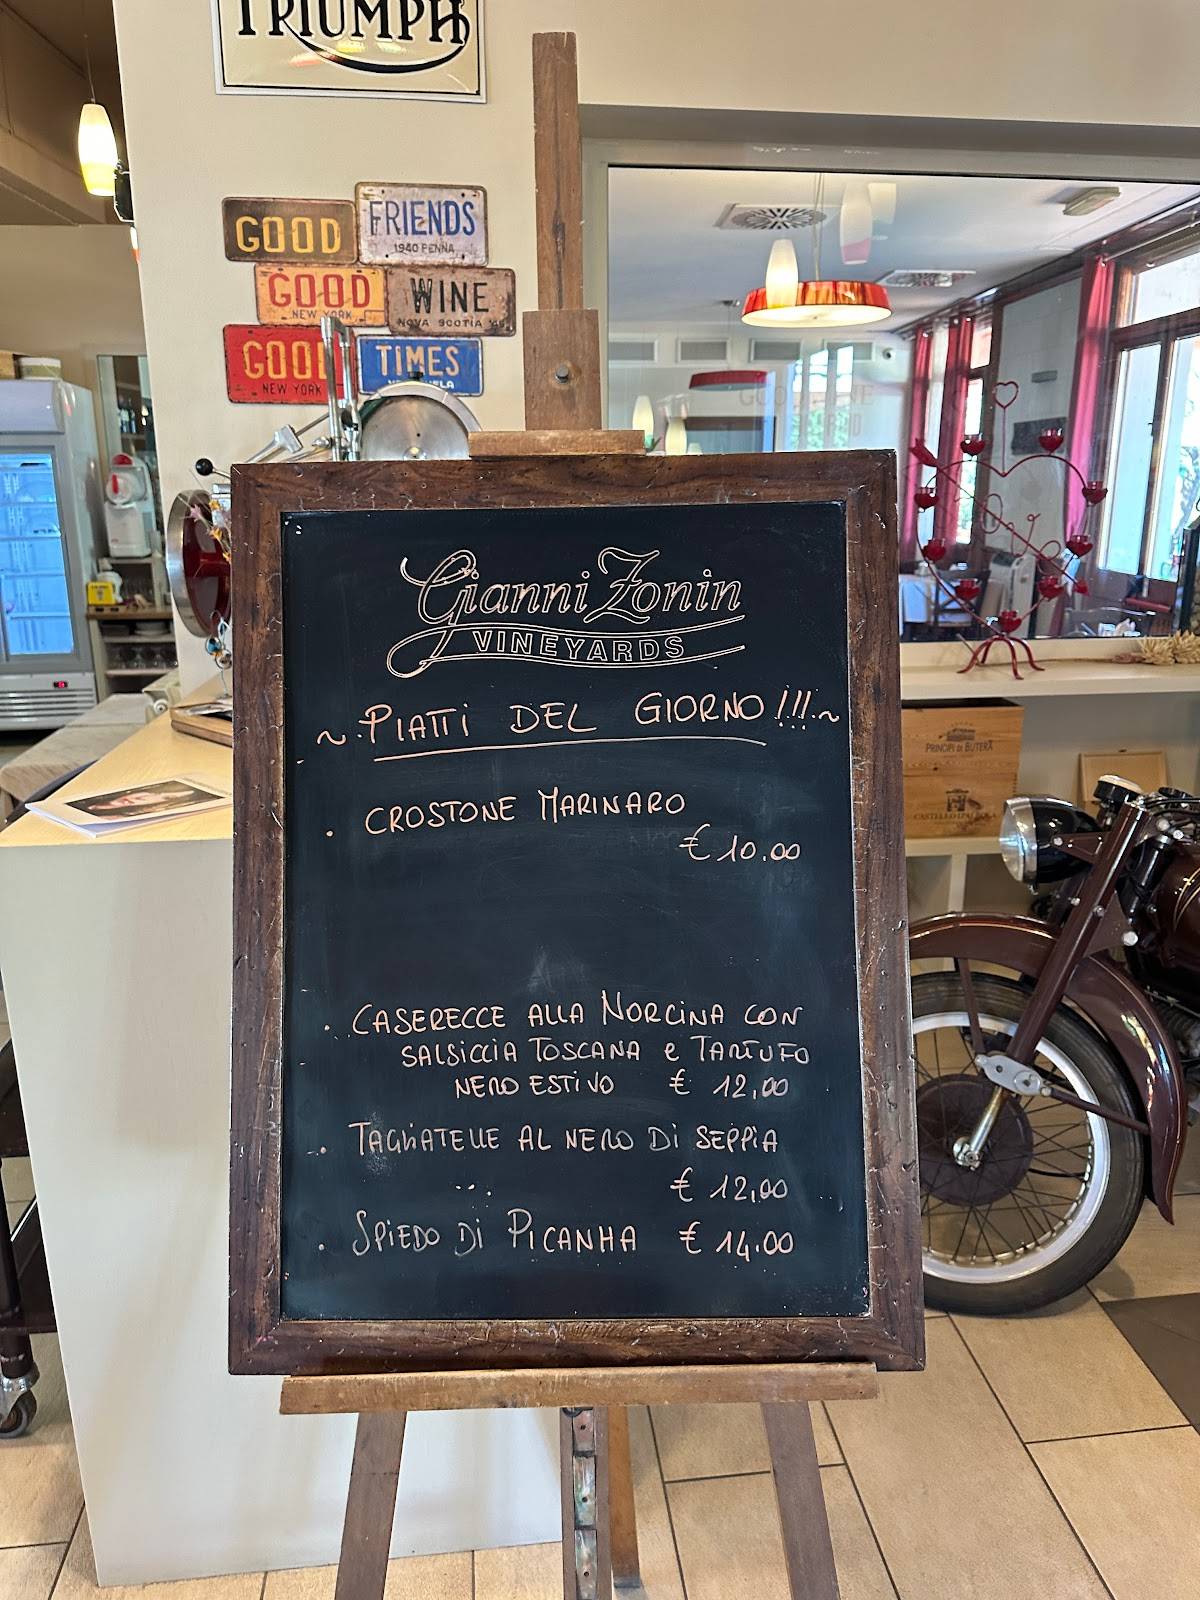 TRIUMPH
GOOD
FRIENDS
1940 PENNA
GOOD
NEW YORK
WINE
NOVA SCOTIA
GOOD
NEW YORK
TIMES
Gianni Zonin
VINEYARDS
~ PIATTI DEL GIORNO!!! ~
. CROSTONE MARINARO
€ 10.00
. CASERECCE ALLA NORCINA CON
SALSICCIA TOSCANA e TARTUFO
NERO ESTIVO € 12,00
. TAGLIATELLE AL NERO DI SEPPIA
... € 12,00
. SPIEDO DI PICANHA € 14.00
PRINCIPI DI BUTERA